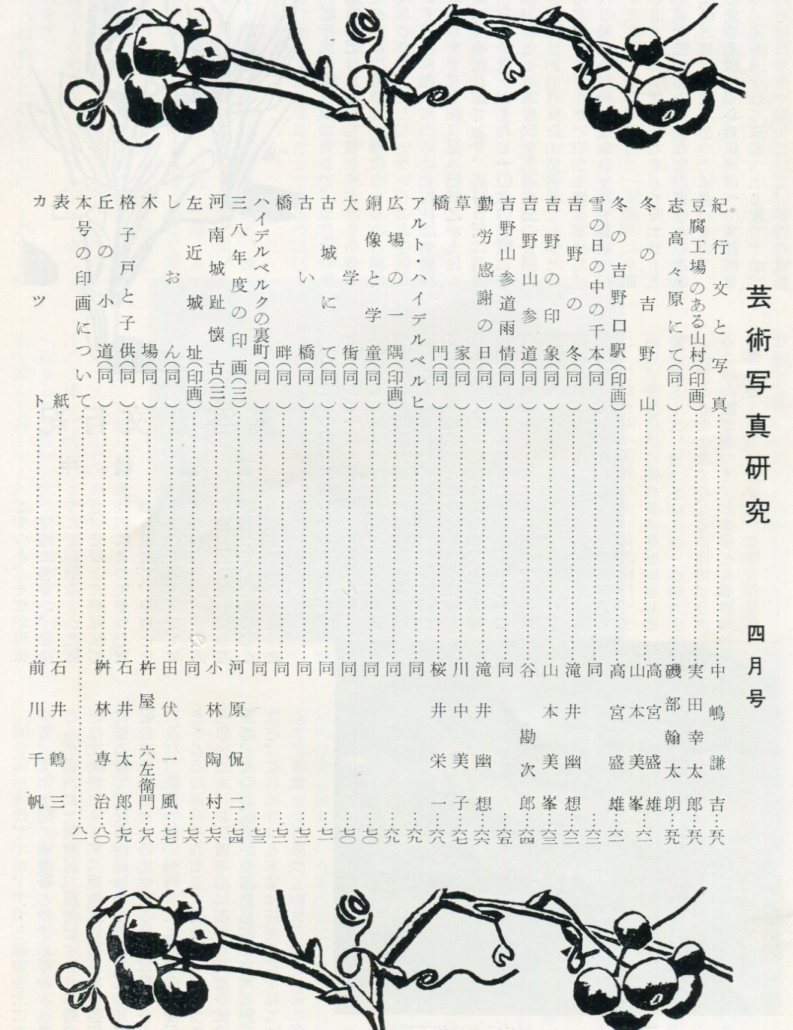 芸術写真研究 四月号
紀行文と写真……中嶋謙吉…五八
豆腐工場のある山村(印画)……実田幸太郎…五八
志高々原にて(同)……磯部翰太朗…五九
冬の吉野山……高宮盛雄 山本美峯…六一
冬の吉野口駅(印画)……高宮盛雄…六一
雪の日の中の千本(同)……同…六二
吉野の冬(同)……滝井幽想…六二
吉野の印象(同)……山本美峯…六三
吉野山参道(同)……谷勘次郎…六四
吉野山参道雨情(同)……同…六五
勤労感謝の日(同)……滝井幽想…六六
草家(同)……川中美子…六七
橋門(同)……桜井栄一…六八
アルト・ハイデルベルヒ……同…六九
広場の一隅(印画)……同…六九
銅像と学童(同)……同…七〇
大学街(同)……同…七〇
古城にて(同)……同…七一
古い橋(同)……同…七二
橋畔(同)……同…七二
ハイデルベルクの裏町(同)……同…七三
三八年度の印画(三)……河原侃二…七四
河南城趾懐古(三)……小林陶村…七六
左近城址(印画)……同…七六
しおん(同)……田伏一風…七七
木場(同)……杵屋六左衛門…七八
格子戸と子供(同)……石井太郎…七九
丘の小道(同)……桝林専治…八〇
本号の印画について……八一
表紙……石井鶴三
カツト……前川千帆